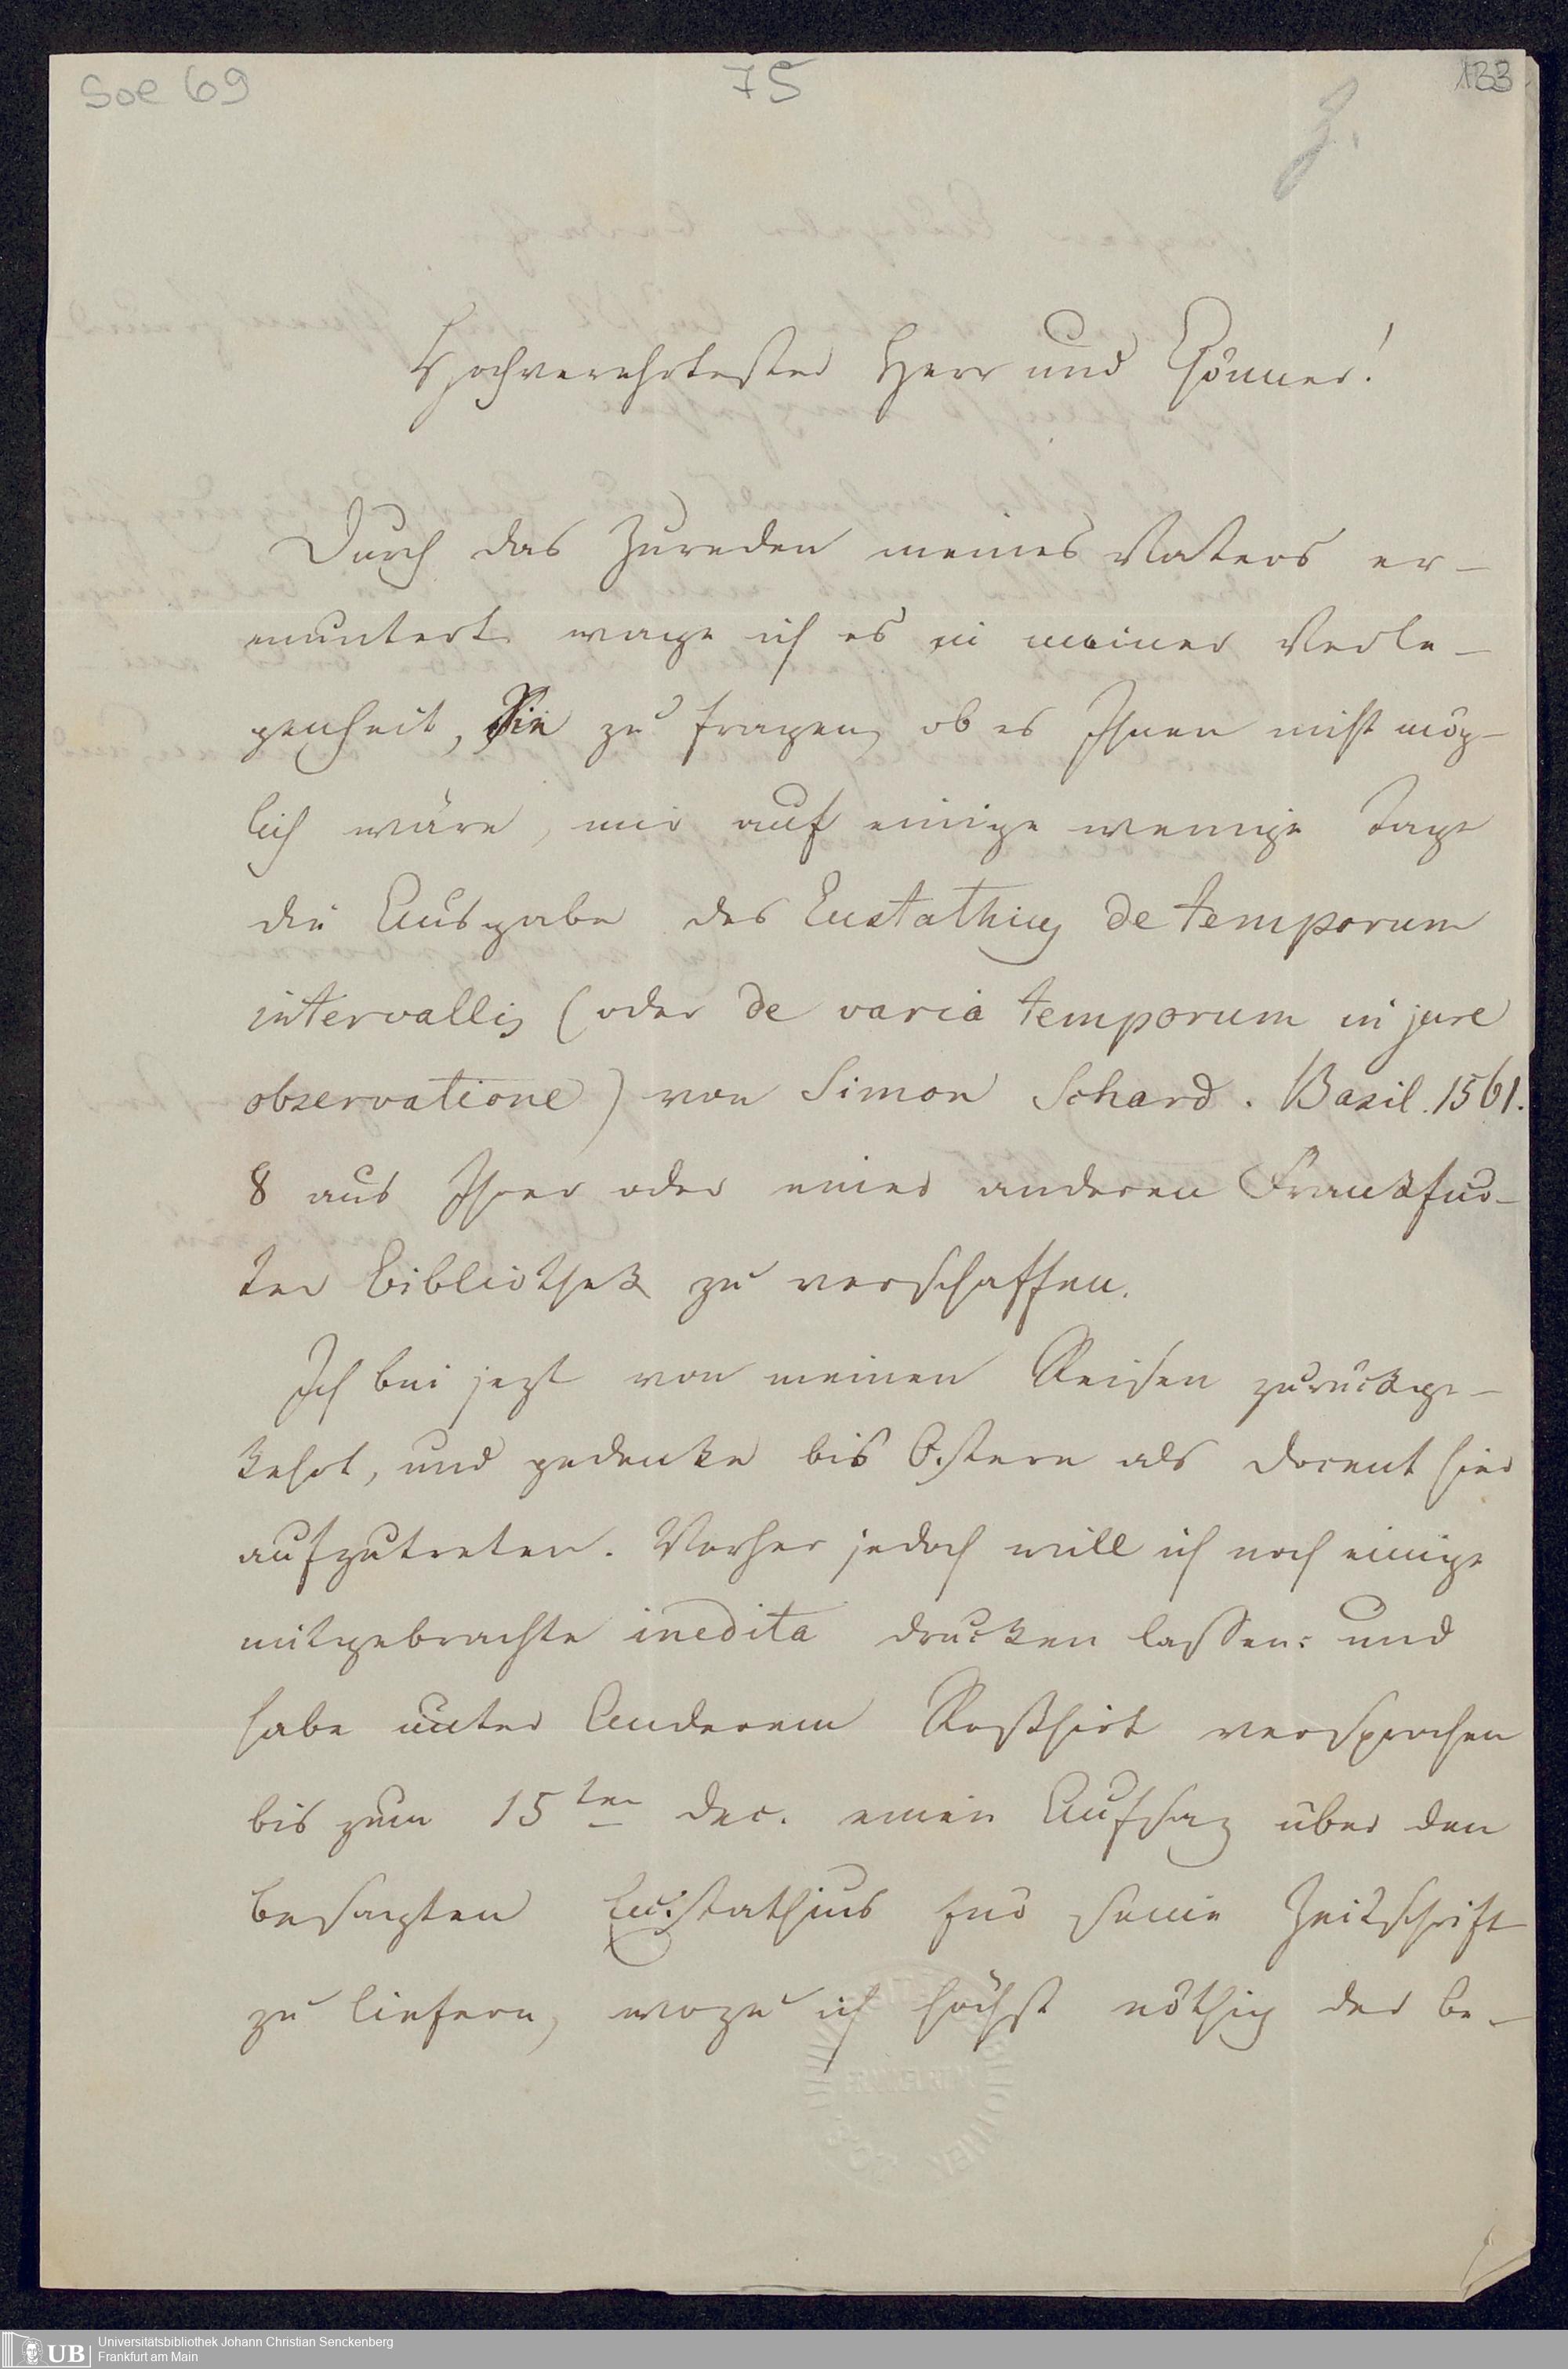 Soe 69 75 133
Z.
Hochverehrtester Herr und Gönner!
Durch das Zureden meines Vaters er-
muntert wage ich es in meiner Verle-
genheit, Sie zu fragen, ob es Ihnen nicht mög-
lich wäre, mir auf einige wenige Tage
die Ausgabe des Eustathius de temporum
intervallis (oder de varia temporum in jure
observatione) von Simon Schard. Basil. 1561.
8 aus Ihrer oder einer anderen Frankfur-
ter Bibliothek zu verschaffen.
Ich bin jezt von meinen Reisen zurückge-
kehrt, und gedenke bis Ostern als Docent hier
aufzutreten. Vorher jedoch will ich noch einige
mitgebrachte inedita drucken lassen: und
habe unter Anderem Roßhirt versprochen
bis zum 15ten Dec. einen Aufsaz über den
besagten Eustathius für seine Zeitschrift
zu liefern, wozu ich höchst nöthig der be-
UB
Universitätsbibliothek Johann Christian Senckenberg
Frankfurt am Main